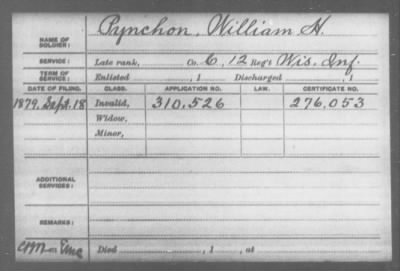 NAME OF SOLDIER: Pynchon, William H.
SERVICE: Late rank, Co. C, 12 Reg't Wis. Inf.
TERM OF SERVICE: Enlisted , 1 Discharged , 1
DATE OF FILING. CLASS. APPLICATION NO. LAW. CERTIFICATE NO.
1879, Sept. 18 Invalid, 310,526 276,053
Widow,
Minor,
ADDITIONAL SERVICES:
REMARKS:
Died , 1 , at